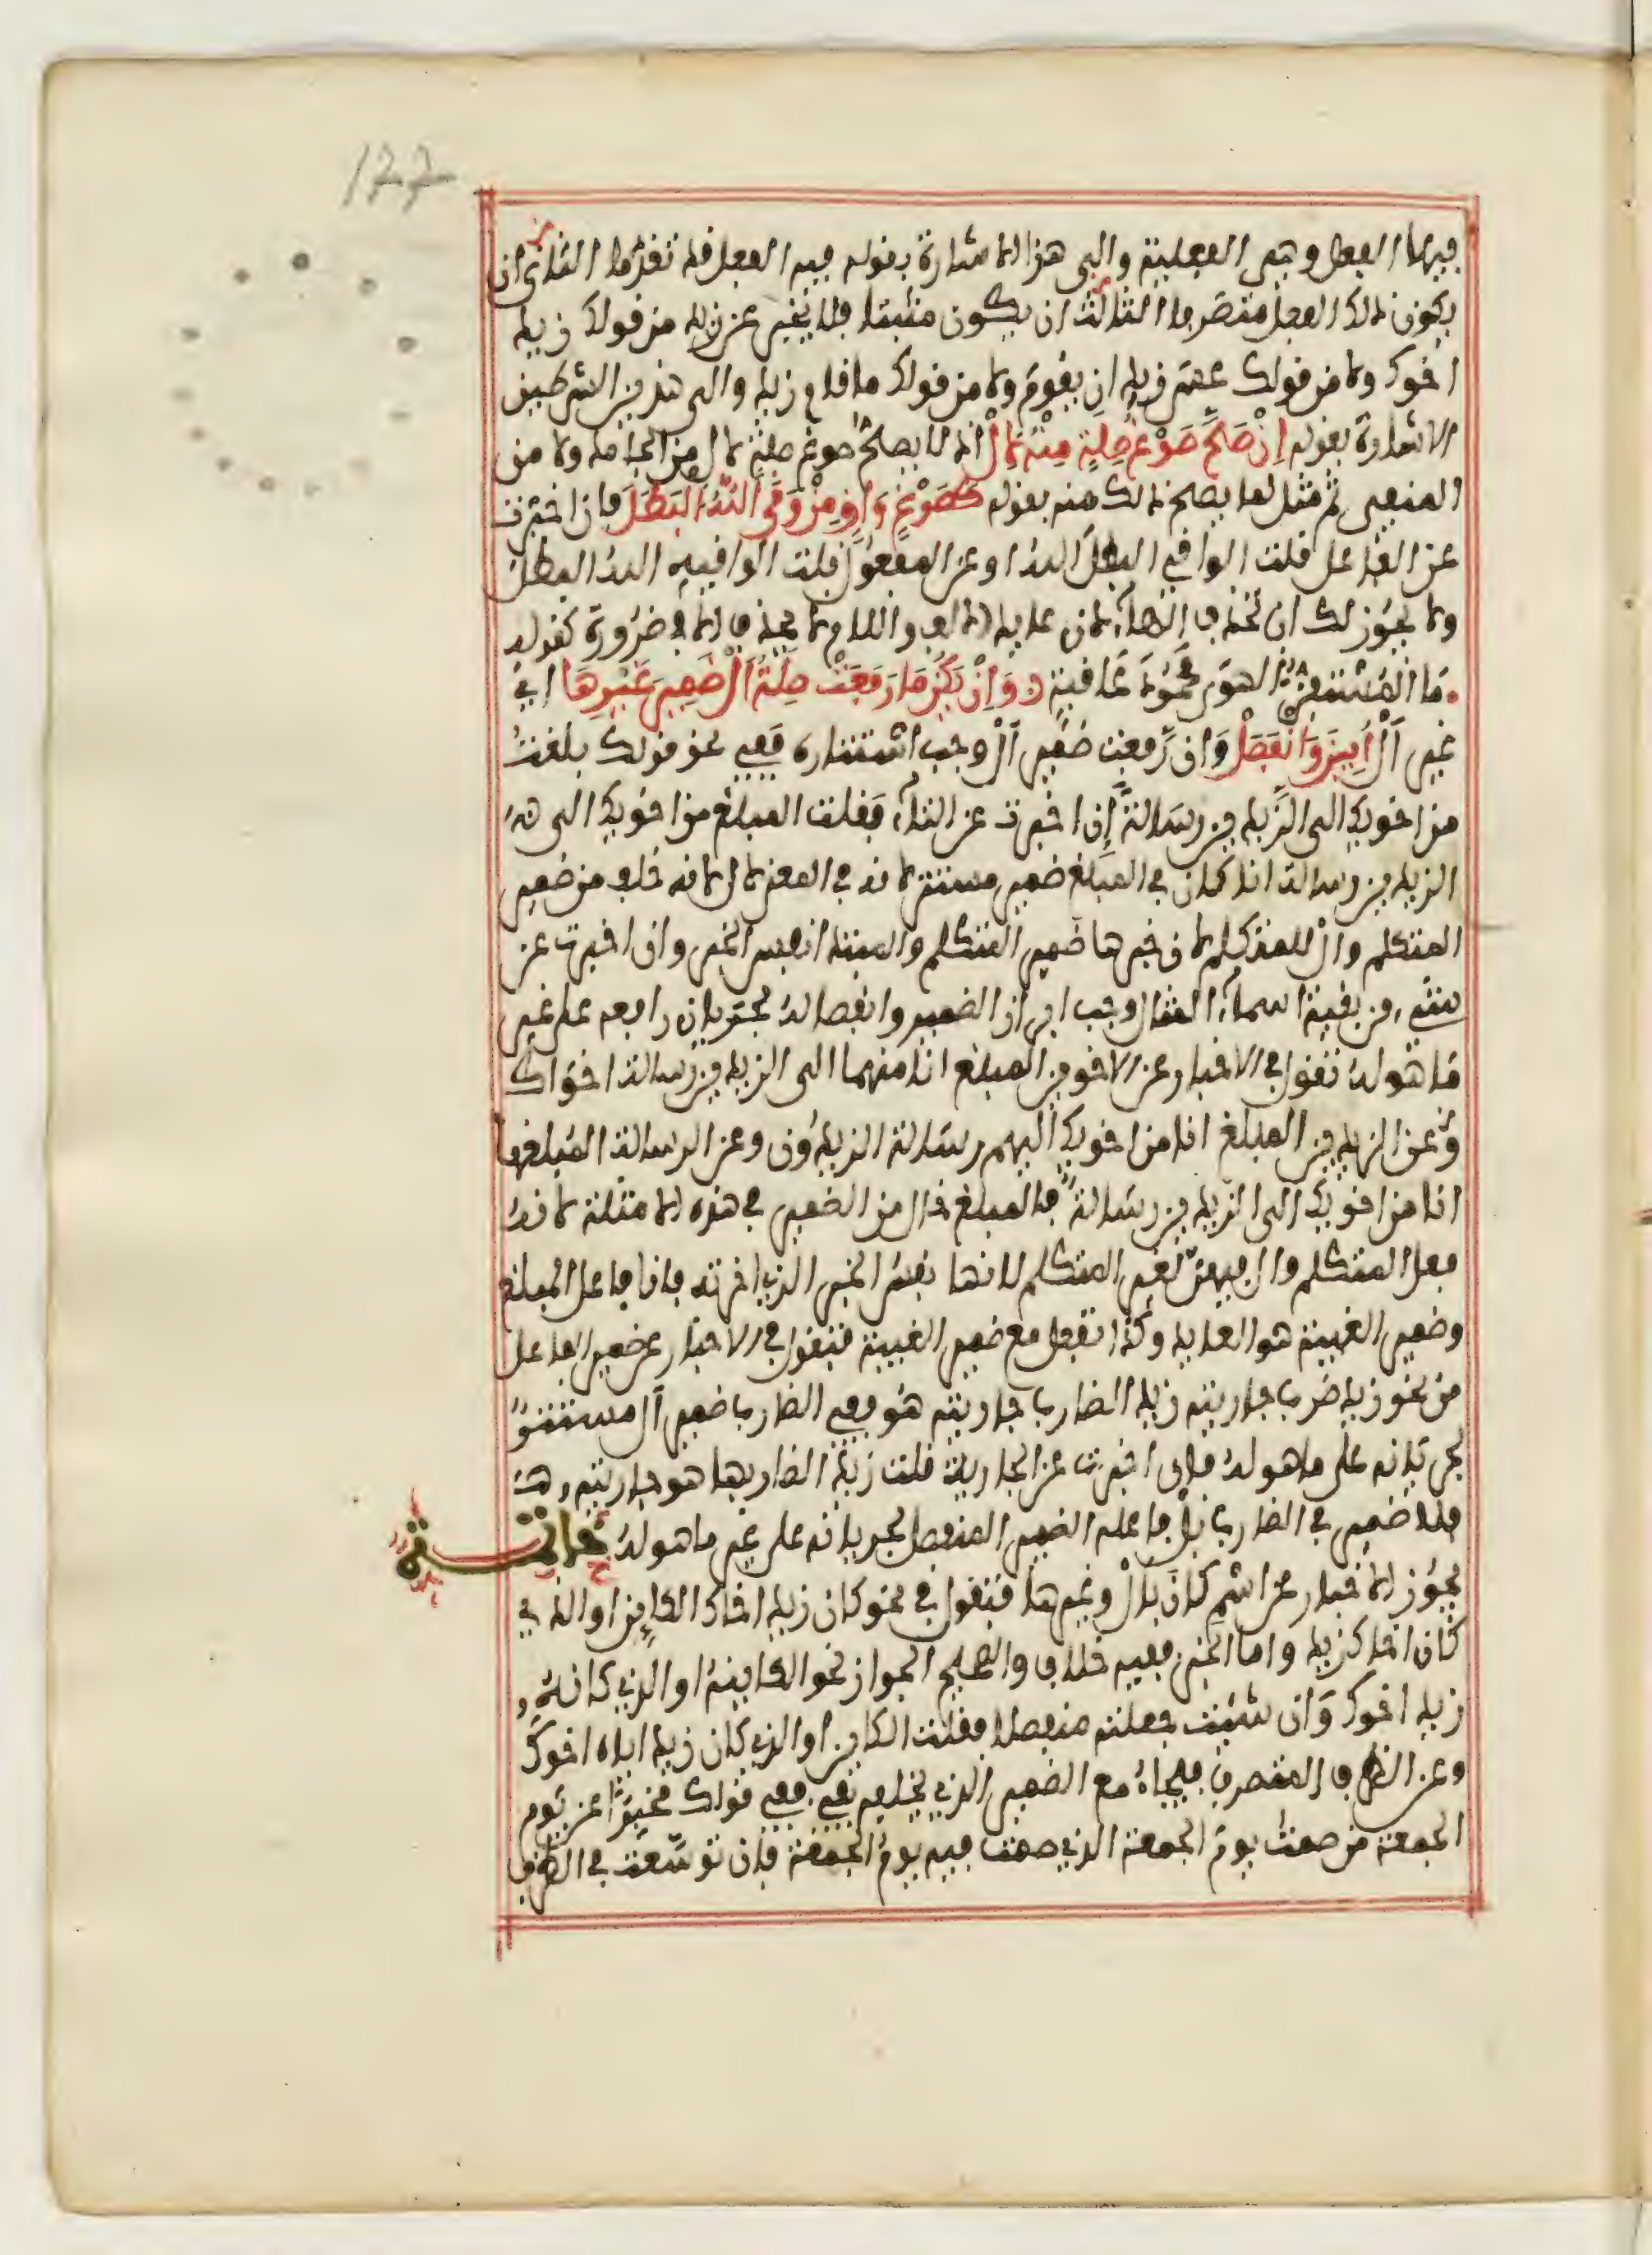 122
فيها الفعل وهي الفعلية والى هذا الاشارة بقوله فيه الفعل قد تقدما الثاني ان
يكون ذلك الفعل متصرفا الثالث ان يكون مثبتا فلا يخبر عن زيد من قولك زيد
اخوك ولا من قولك عسى زيد ان يقوم ولا من قولك ما قام زيد والى هذين الشرطين
الاشارة بقوله إن صَحَّ صَوْغُ صِلَةٍ مِنْهُ لِأَلْ اذ لا يصح صوغ صلة لال من الجامد ولا من
المنفي ثم مثل لما يصح ذلك منه بقوله كَصَوْغِ وَاقٍ مِنْ وَقَى اللَّهُ الْبَطَلَ فان اخبرت
عن الفاعل قلت الواقي البطل الله او عن المفعول قلت الواقيه الله البطل
ولا يجوز لك ان تحذف الهاء لان عايد الالف واللام لا يحذف الا في ضرورة كقوله
ما المستفز الهوى محمود عاقبة وَإِنْ يَكُنْ مَا رَفَعَتْ صِلَةُ أَلْ ضَمِيرَ غَيْرِهَا اي
غير أل أُبِينَ وَانْفَصَلْ وان رفعت ضمير أل وجب استتاره ففي نحو قولك بلغت
من اخويك الى الزيدين رسالة إن اخبرت عن التاء فقلت المبلغ من اخويك الى
الزيدين رسالة انا كان في المبلغ ضمير مستتر لانه في المعنى لال لانه خلف من ضمير
المتكلم وال للمتكلم لان خبرها ضمير المتكلم والمبتدا نفس الخبر وان اخبرت عن
شيء من بقية اسماء المثال وجب ابراز الضمير وانفصاله لجريان رافعه على غير
ما هو له تقول في الاخبار عن الاخوين المبلغ انا منهما الى الزيدين رسالة اخواك
وعن الزيدين المبلغ انا من اخويك اليهم رسالة الزيدون وعن الرسالة المبلغها
انا من اخويك الى الزيدين رسالة فالمبلغ خال من الضمير في هذه الامثلة لانه
فعل المتكلم وال فيهن لغير المتكلم لانها نفس الخبر الذي اخرته فانا فاعل المبلغ
وضمير الغيبة هو العايد وكذا تفعل مع ضمير الغيبة فتقول في الاخبار عن ضمير الفاعل
من نحو زيد ضرب جاريته زيد الضارب جاريته هو ففي الضارب ضمير أل مستتر
لجريانه على ما هو له فان اخبرت عن الجارية قلت زيد الضاربها هو جاريته
فلا ضمير في الضارب بل فاعله الضمير المنفصل لجريانه على غير ما هو له خاتمة
يجوز الاخبار عن اسم كان بال وغيرها فتقول في نحو كان زيد اخاك الكاين او الذي
كان اخاك زيد واما الخبر ففيه خلاف والصحيح الجواز نحو الكاينه او الذي كانه
زيد اخوك وان شيت جعلته منفصلا فقلت الكاين او الذي كان زيد اياه اخوك
وعن الظرف المتصرف فيجاء مع الضمير الذي يخلفه بفي ففي قولك مخبرا عن يوم
الجمعة من صمت يوم الجمعة الذي صمت فيه يوم الجمعة فان توسعت في الظرف